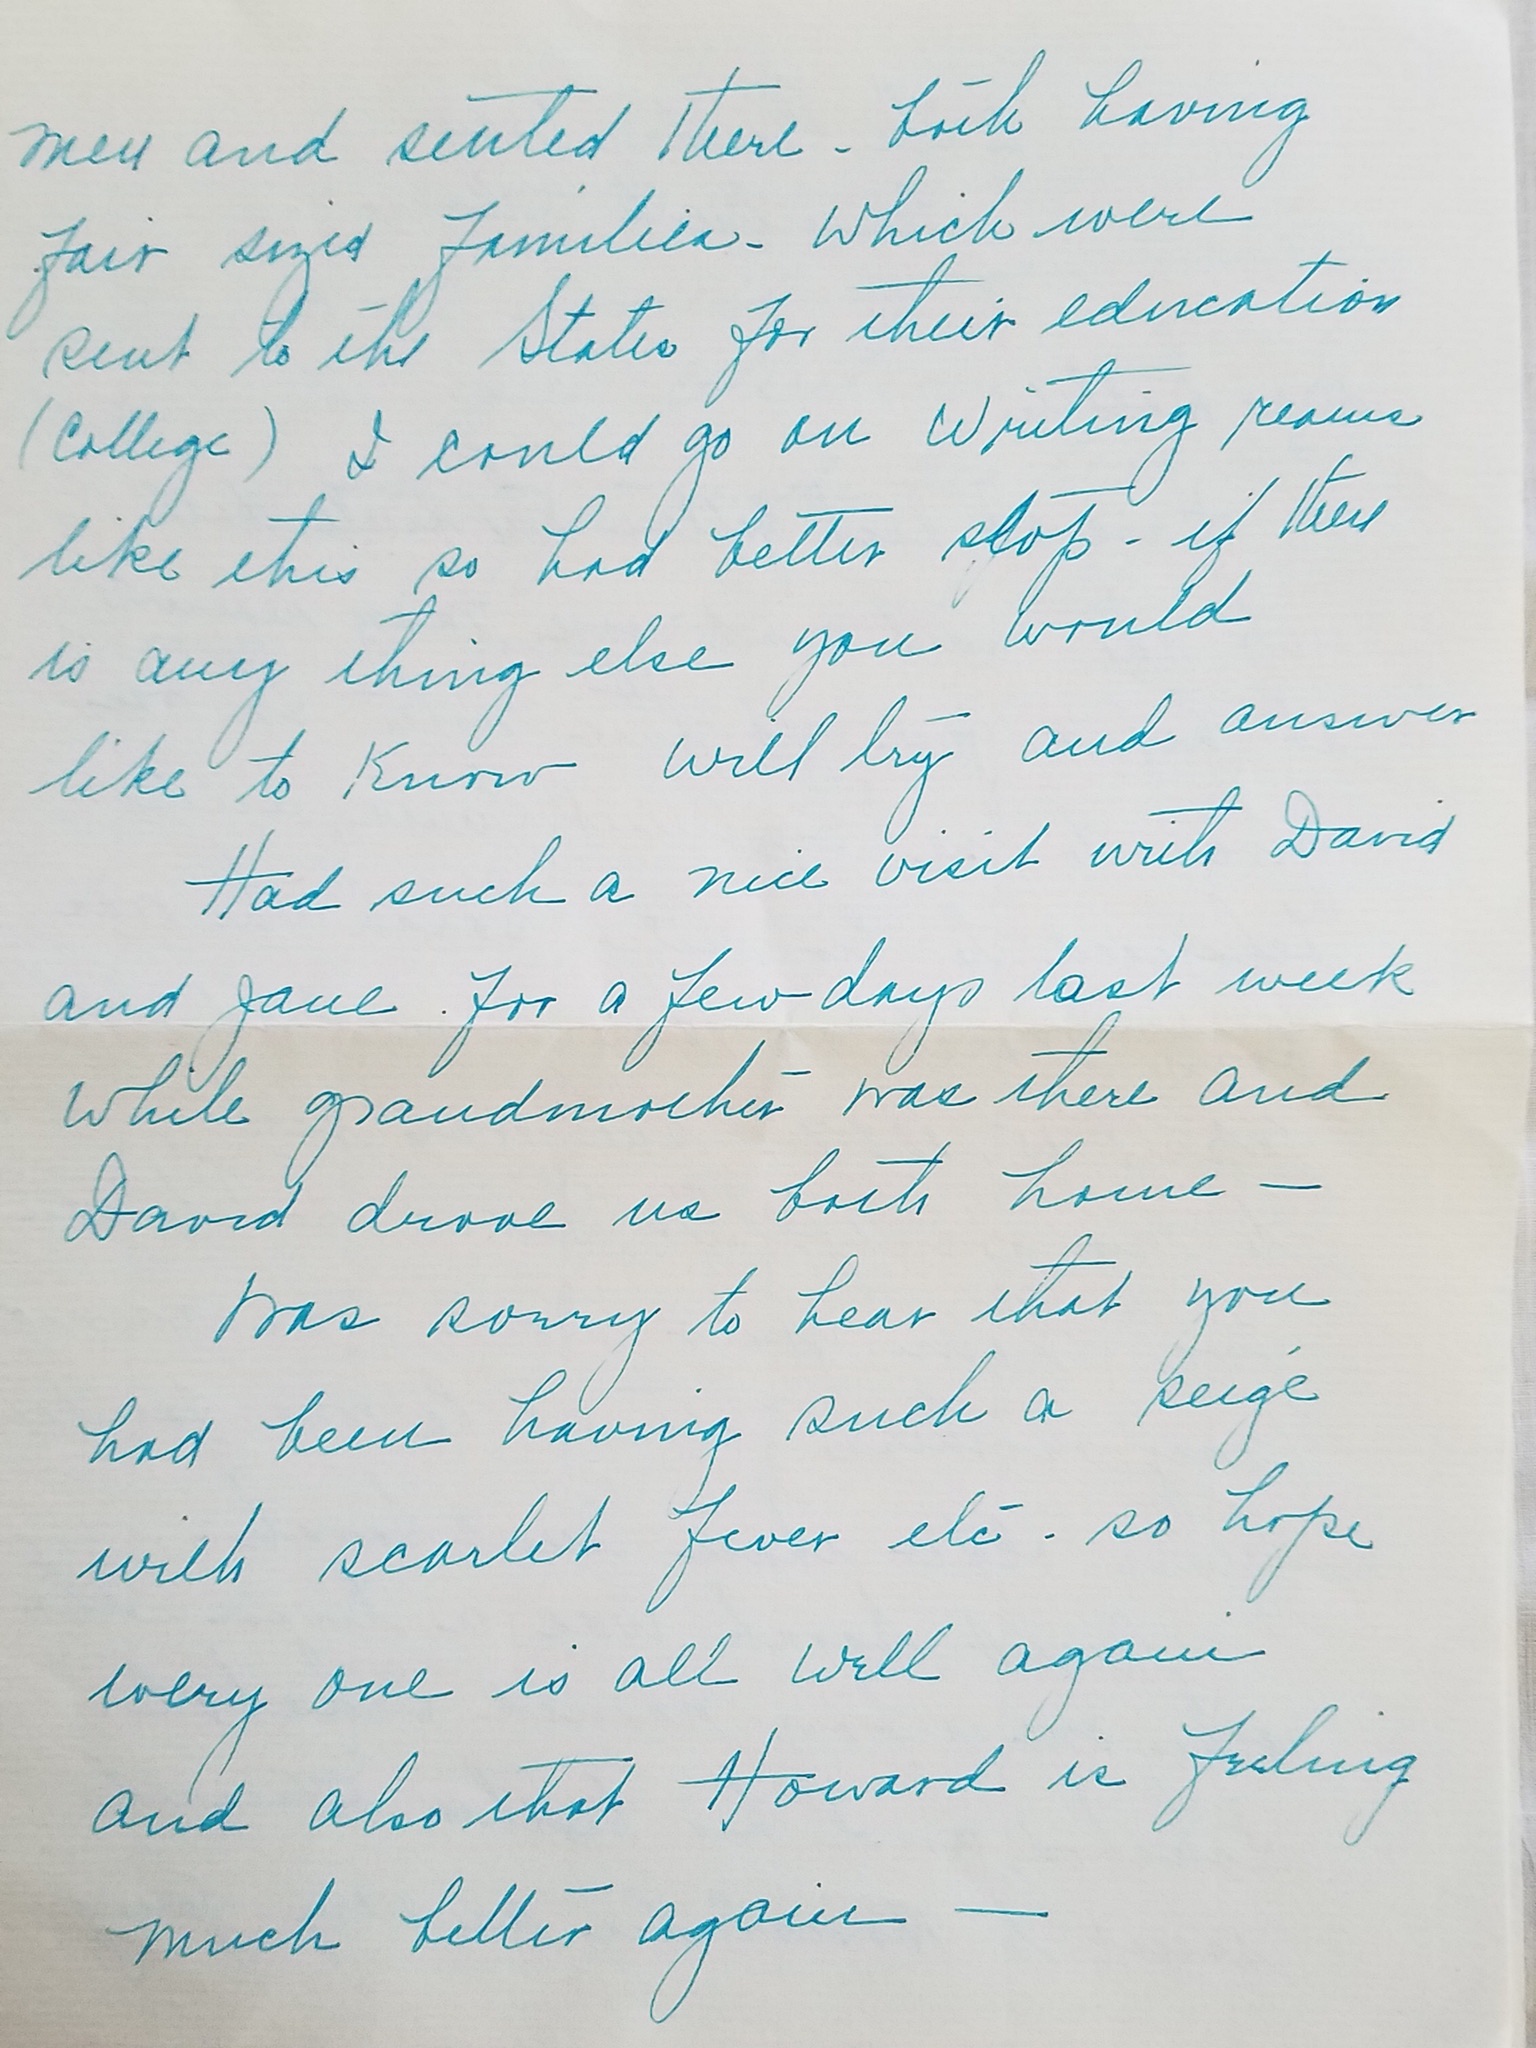 men and settled there - both having
fair sized families - which were
sent to the States for their education
(College) I could go on writing reams
like this so had better stop - if there
is any thing else you would
like to know will try and answer
Had such a nice visit with David
and Jane. for a few days last week
while grandmother was there and
David drove us both home —
Was sorry to hear that you
had been having such a seige
with scarlet fever etc - so hope
every one is all well again
and also that Howard is feeling
much better again —